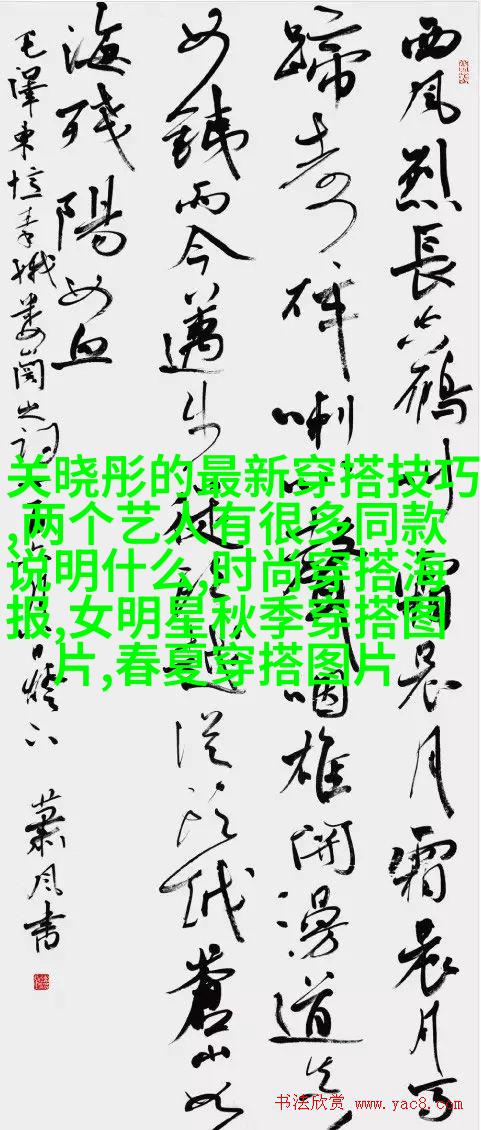 西风烈長空雁叫霜晨月霜晨月马
蹄声碎喇叭声咽雄関漫道真
如鐵而今邁步從頭越從頭越蒼山如
海殘陽如血
毛澤東憶秦娥娄山関之詞 蕭风書
关晓彤的最新穿搭技巧
,两个艺人有很多同款
说明什么,时尚穿搭海
报,女明星秋季穿搭图
片,春夏穿搭图片
书法欣赏 www.yac8.com